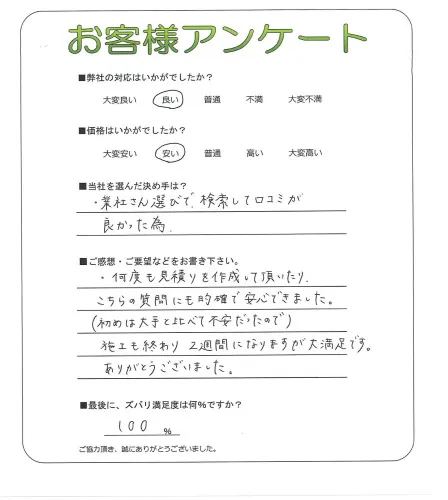 お客様アンケート
■弊社の対応はいかがでしたか？
大変良い 良い 普通 不満 大変不満
■価格はいかがでしたか？
大変安い 安い 普通 高い 大変高い
■当社を選んだ決め手は？
・業社さん選びで、検索して口コミが
良かった為.
■ご感想・ご要望などをお書き下さい。
・何度も見積りを作成して頂いたり、
こちらの質問にも的確で安心できました。
(初めは大手と比べて不安だったので)
施工も終わり 2週間になりますが大満足です。
ありがとうございました。
■最後に、ズバリ満足度は何%ですか？
100 %
ご協力頂き、誠にありがとうございました。